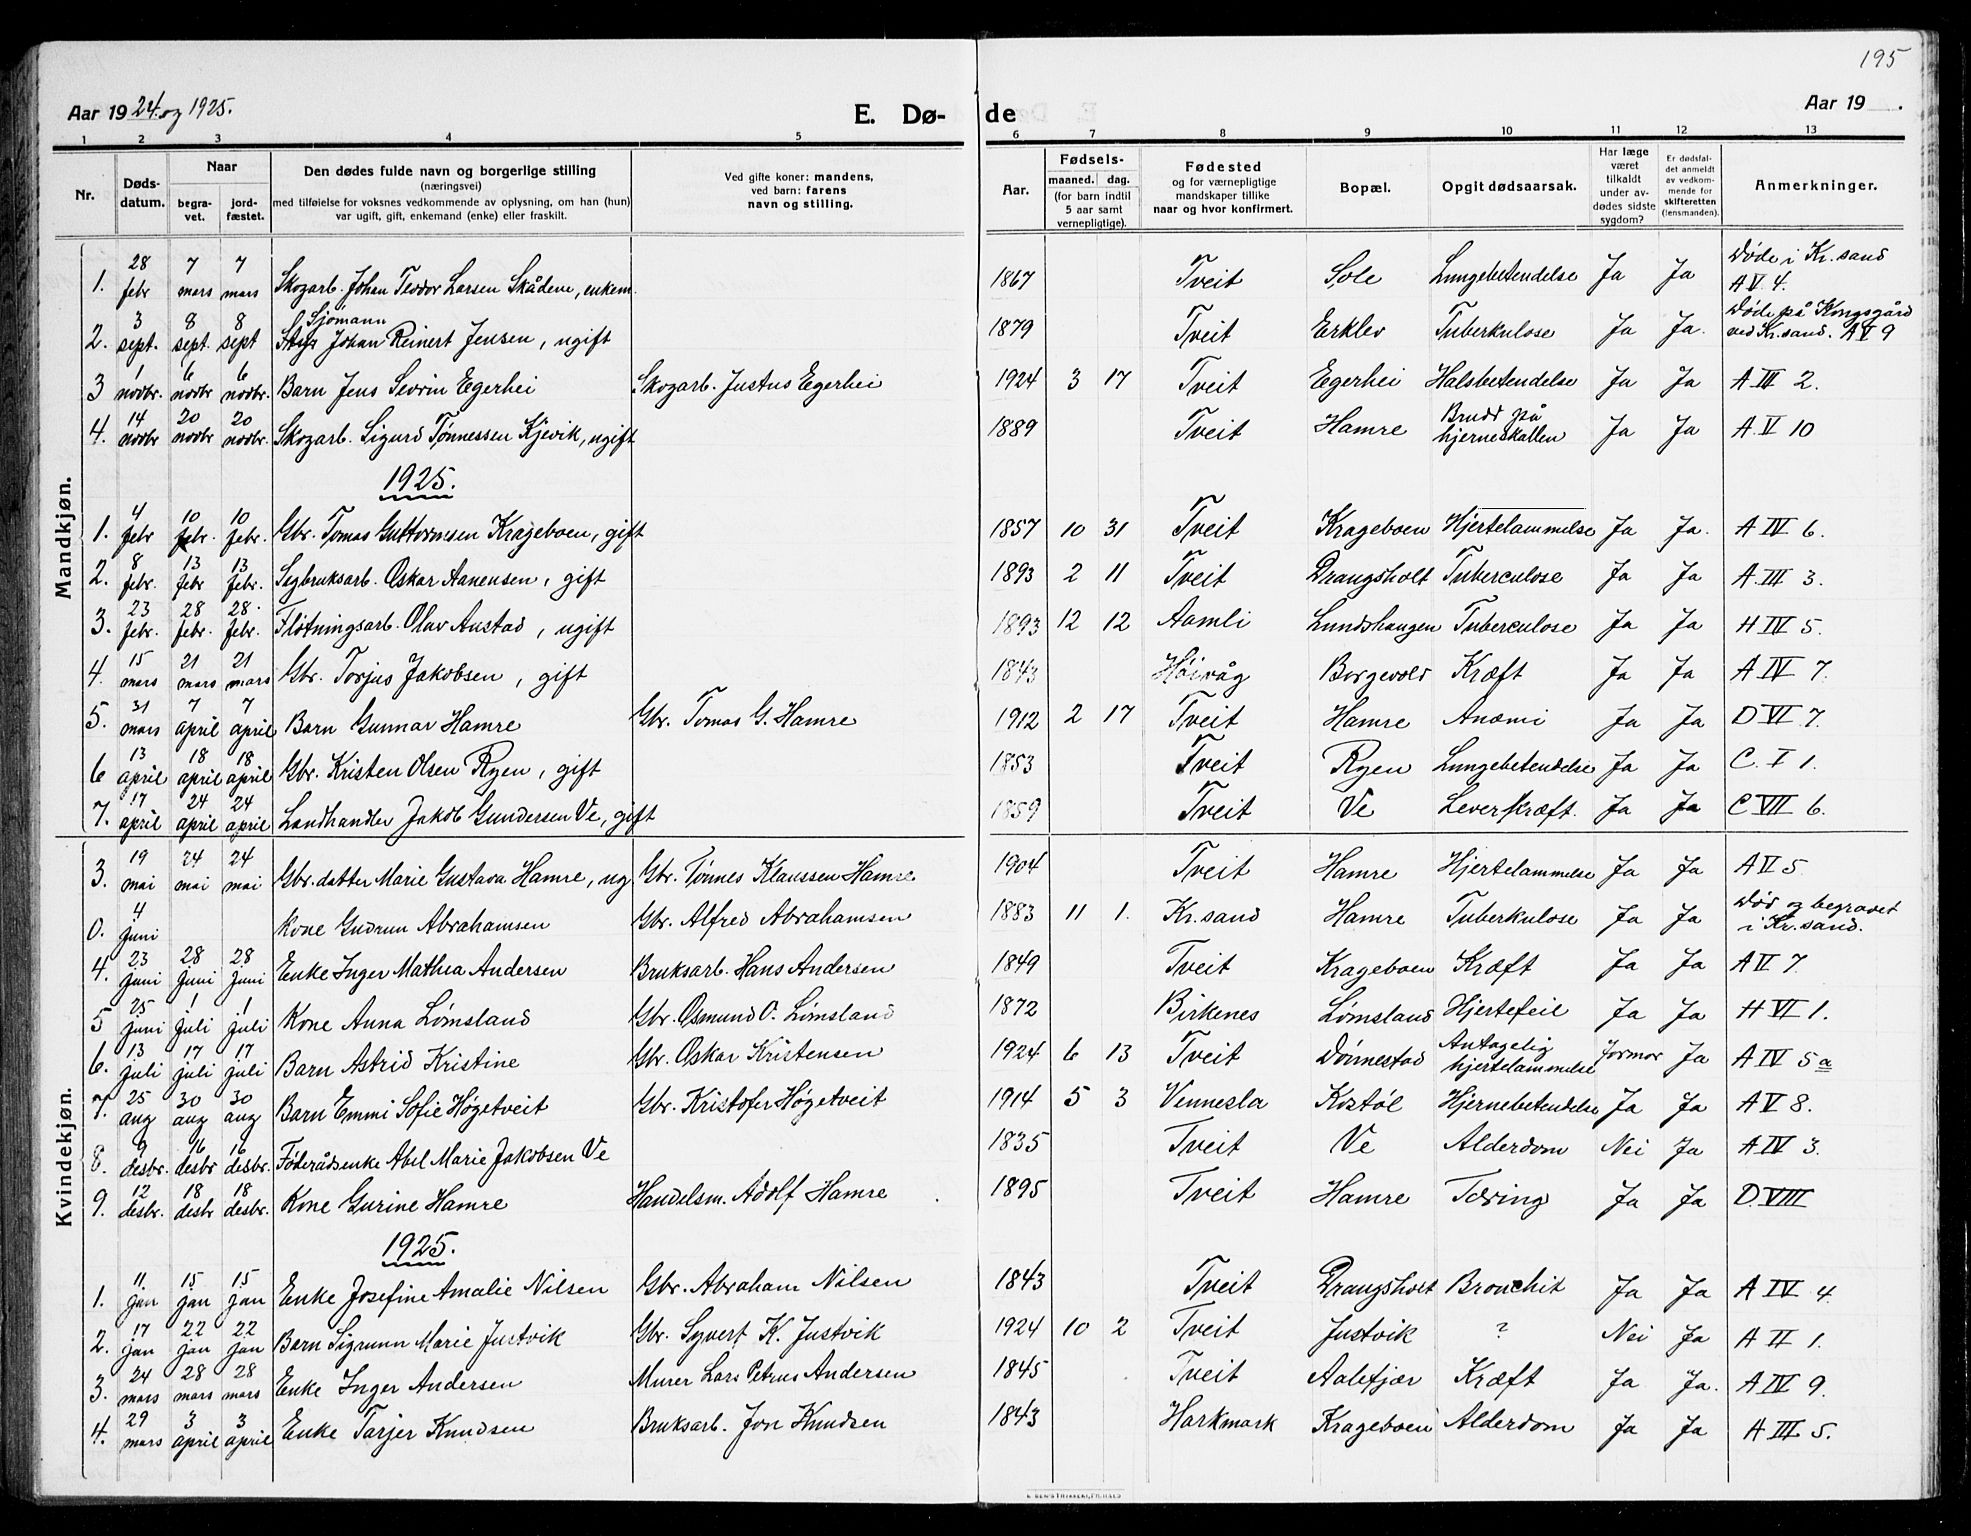 195
Aar 1924 og 1925.
E. Døde
Aar 19 .
1 2 3 4 5 6 7 8 9 10 11 12 13
Nr.
Døds-datum.
Naar
begra-vet.
jord-fæstet.
Den dødes fulde navn og borgerlige stilling
(næringsvei)
med tilføielse for voksnes vedkommende av oplysning, om han (hun)
var ugift, gift, enkemand (enke) eller fraskilt.
Ved gifte koner: mandens,
ved barn: farens
navn og stilling.
Aar.
Fødsels-
maaned. dag.
(for barn indtil
5 aar samt
vernepligtige).
Fødested
og for værnepligtige
mandskaper tillike
naar og hvor konfirmert.
Bopæl.
Opgit dødsaarsak.
Har læge
været
tilkaldt
under av-
dødes sidste
sygdom?
Er dødsfal-
det anmeldt
av vedkom-
mende for
skifteretten
(lensmanden).
Anmerkninger.
Mandkjøn.
1. 28 febr 7 mars 7 mars Skogarb. Johan Teodor Larsen Skådene, enkem. 1867 Tveit Sole Lungebetendelse Ja Ja Døde i Kr.sand A V 4.
2. 3 sept. 8 sept. 8 sept Sjømann Johan Reinert Jensen, ugift 1879 Tveit Erklev Tuberkulose Ja Ja. Døde på Kongsgård ved Kr.sand. A V 9
3 1 novbr. 6 novbr 6 novbr. Barn Jens Sevrin Egerhei Skogarb. Justus Egerhei 1924 3 17 Tveit Egerhei Halsbetendelse Ja Ja A III 2.
4. 14 novbr 20 novbr 20 novbr. Skogarb. Sigurd Tønnessen Kjevik, ugift 1889 Tveit Hamre Brudd på hjerneskallen Ja Ja A. V 10
1925.
1. 4 febr 10 febr. 10 febr. Gbr. Tomas Guttormsen Krageboen, gift 1857 10 31 Tveit Krageboen Hjertelammelse Ja Ja. A IV 6.
2. 8 febr. 13 febr 13 febr. Sagbruksarb. Oskar Aanensen, gift 1893 2 11 Tveit Drangsholt Tuberculose Ja Ja A. III 3.
3. 23 febr. 28 febr. 28. febr. Fløtningsarb. Olav Austad, ugift 1893 12 12 Aamli Lundshaugen Tuberculose Ja Ja H IV 5.
4. 15 mars 21 mars 21 mars Gbr. Torjus Jakobsen, gift 1843 Høivåg Borgevold Kræft Ja Ja A IV 7.
5. 31 mars 7 april 7 april Barn Gunnar Hamre Gbr. Tomas G. Hamre 1912 2 17 Tveit Hamre Anæmi Ja Ja D VI 7.
6 13 april 18 april 18 april Gbr. Kristen Olsen Ryen, gift 1853 Tveit Ryen Lungebetendelse Ja Ja C. I 1.
7. 17 april 24 april 24 april Landhandler Jakob Gundersen Ve, gift 1859 Tveit Ve Leverkræft. Ja Ja C VII 6.
Kvindekjøn.
3. 19 mai 24 mai 24 mai Gbr. datter Marie Gustava Hamre, ug Gbr. Tønnes Klaussen Hamre 1904 Tveit Hamre Hjertelammelse Ja Ja A V 5.
0. 4 juni Kone Gudrun Abrahamsen Gbr. Alfred Abrahamsen 1883 11 1. Kr.sand Hamre Tuberkulose Ja Ja Død og begravet i Kr.sand.
4. 23 juni 28 juni 28 juni Enke Inger Mathea Andersen Bruksarb. Hans Andersen 1849 Tveit Krageboen Kræft Ja Ja A V 7.
5 25 juni 1 juli 1 juli Kone Anna Lømsland Gbr. Osmund O. Lømsland 1872 Birkenes Lømsland Hjertefeil Ja Ja H VI 1.
6. 13 juli 17 juli 17 juli Barn Astrid Kristine Gbr. Oskar Kristensen 1924 6 13 Tveit Dønnestad Antagelig hjertelammelse Jormor Ja A IV 5 a
7. 25 aug 30 aug 30 aug Barn Emmi Sofie Høgetveit Gbr. Kristofer Høgetveit 1914 5 3 Vennesla Kostøl Hjernebetendelse Ja Ja A V 8.
8. 9 desbr. 16 desbr 16 desbr. Føderådsenke Abel Marie Jakobsen Ve 1835 Tveit Ve Alderdom Nei Ja A IV 3.
9. 12 desbr. 18 desbr 18 desbr. Kone Gurine Hamre Handelsm. Adolf Hamre 1895 Tveit Hamre Tæring Ja Ja D. VIII
1925.
1. 11 jan 15 jan 15 jan Enke Josefine Amalie Nilsen Gbr. Abraham Nilsen 1843 Tveit Drangsholt Bronchit Ja Ja A IV 4.
2. 17 jan 22 jan 22 jan Barn Sigrunn Marie Justvik Gbr. Syvert K. Justvik 1924 10 2 Tveit Justvik ? Nei Ja A II 1.
3. 24 mars 28 mars 28 mars Enke Inger Andersen Murer Lars Petrus Andersen 1845 Tveit Aalefjær Kræft Ja Ja. A IV 9.
4. 29 mars 3 april 3 april Enke Tarjer Knudsen Bruksarb. Jon Knudsen 1843 Harkmark Krageboen Alderdom Ja Ja A III 5.